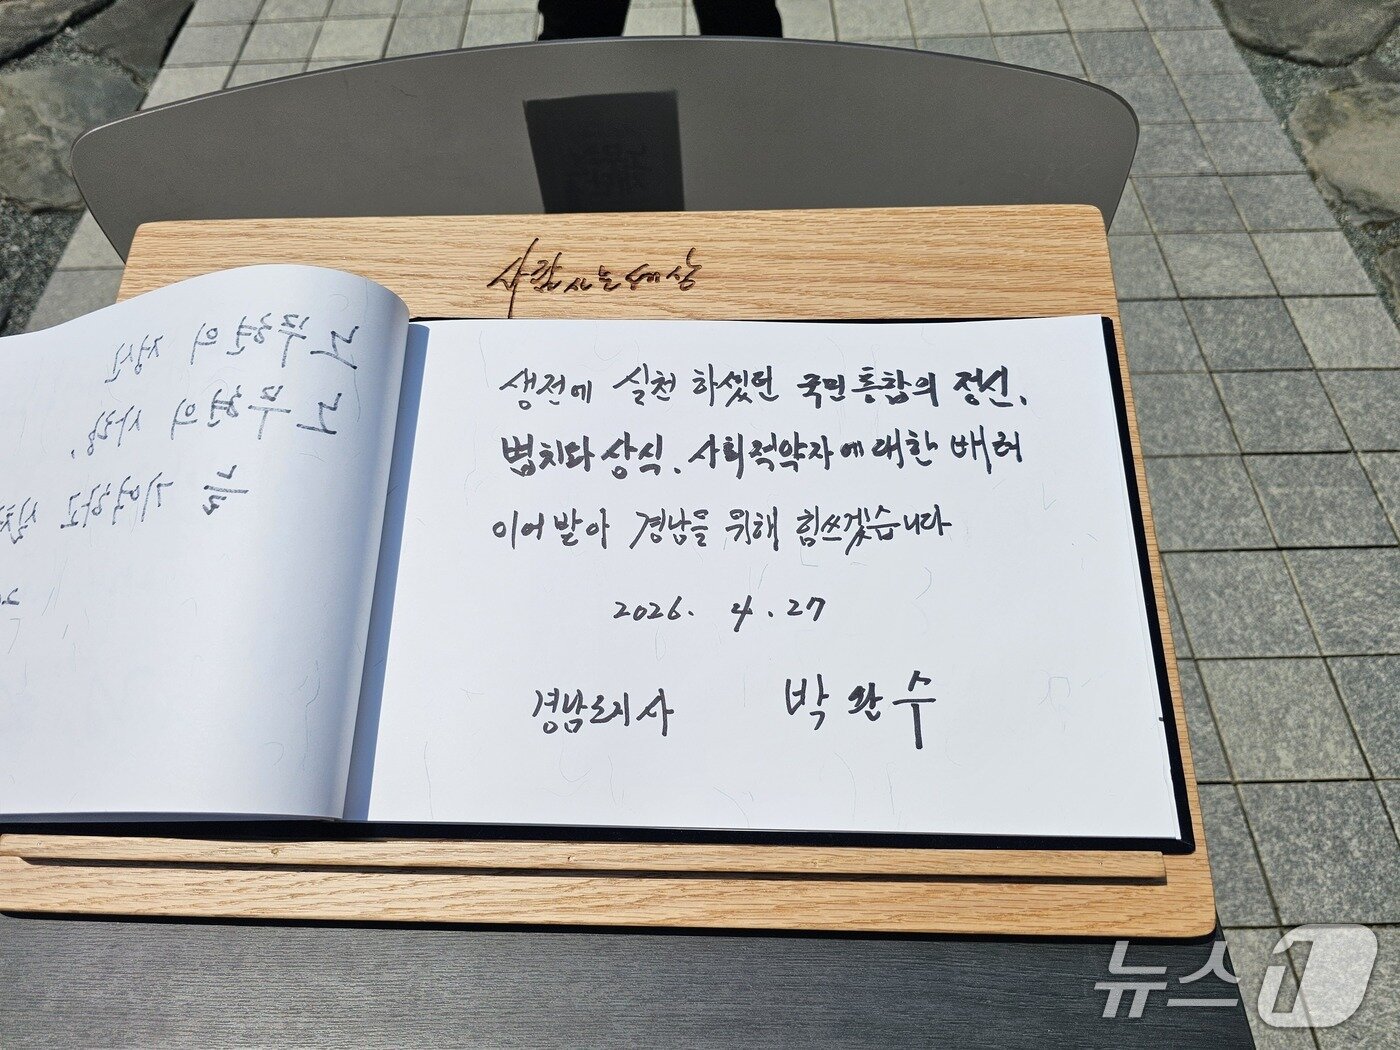 사람사는세상
생전에 실천 하셨던 국민통합의 정신,
법치와 상식, 사회적약자에 대한 배려
이어받아 경남을 위해 힘쓰겠습니다
2026. 4. 27
경남도지사 박완수
노무현의 정신
노무현의 사랑,
늘 기억하고
뉴스1